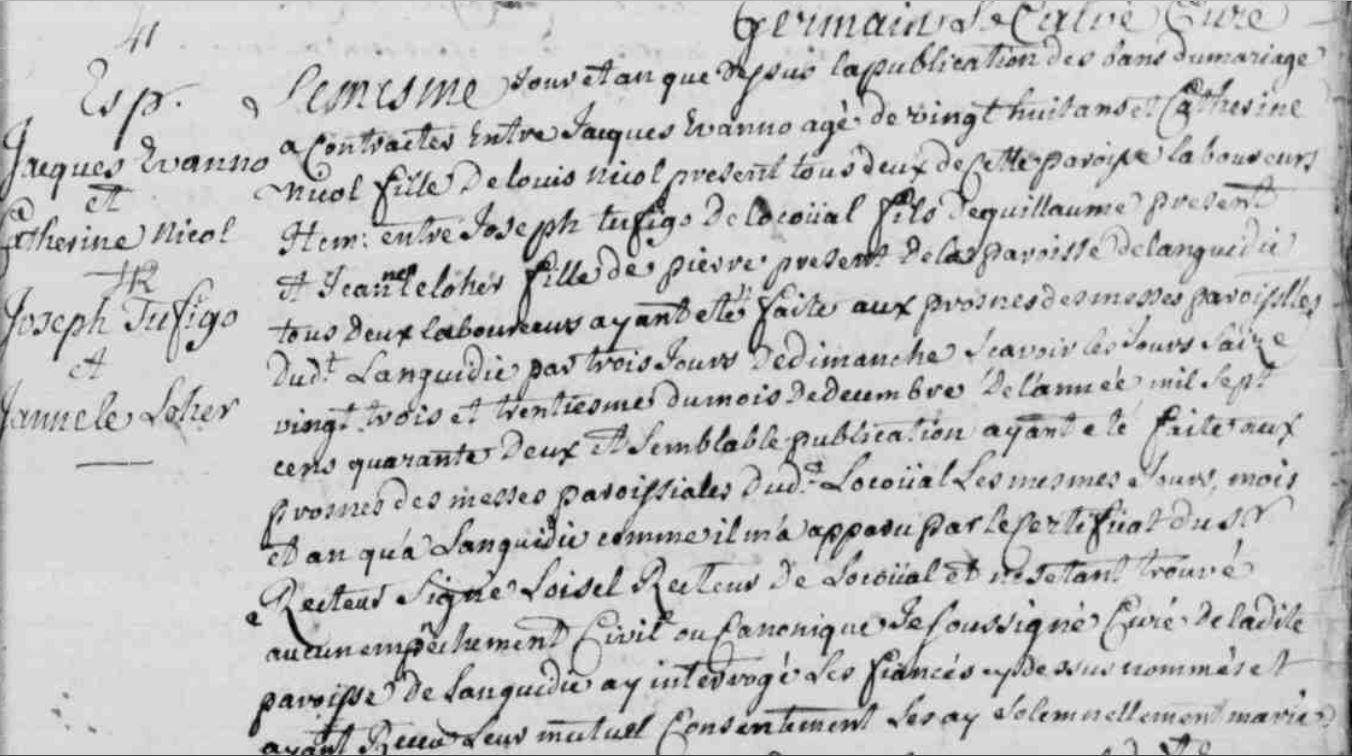 Germain Le Calvé Curé
41
Esp.
Jacques Evanno
et
Catherine Nicol
Joseph Tufigo
et
Janne le Loher
Le mesme jour et an que depsuis la publication des bans du mariage
a Contracter Entre Jacques Evanno agé de vingt huit ans et Catherine
Nicol fille de louis nicol present tous deux de Cette paroisse laboureurs
Item: entre Joseph tufigo de locoüal fils de guillaume present
et Jeanne le loher fille de pierre present de la paroisse de languidic
tous deux laboureurs ayant eté faite aux prosnes des messes paroisslles
dud.t Languidic par trois Jours de dimanche Scavoir les Jours Saize
vingt trois et trentiesme du mois de decembre de l'année mil Sept
cens quarante deux et Semblable publication ayant eté faite aux
prosnes des messes paroissiales dud.t Locoüal Les mesmes Jours, mois
et an qu'a Languidic comme il m'a apparu par le Certificat du Sr
Recteur Signé Loisel Recteur de Locoüal et ne Setant trouvé
aucun empêchement Civil ou Canonique Je Soussigné Curé de la dite
paroisse de Languidic ay interrogé Les fiancés cydessus nommés et
ayant Receu Leur mutuel Consentement Les ay Solemnellement marié